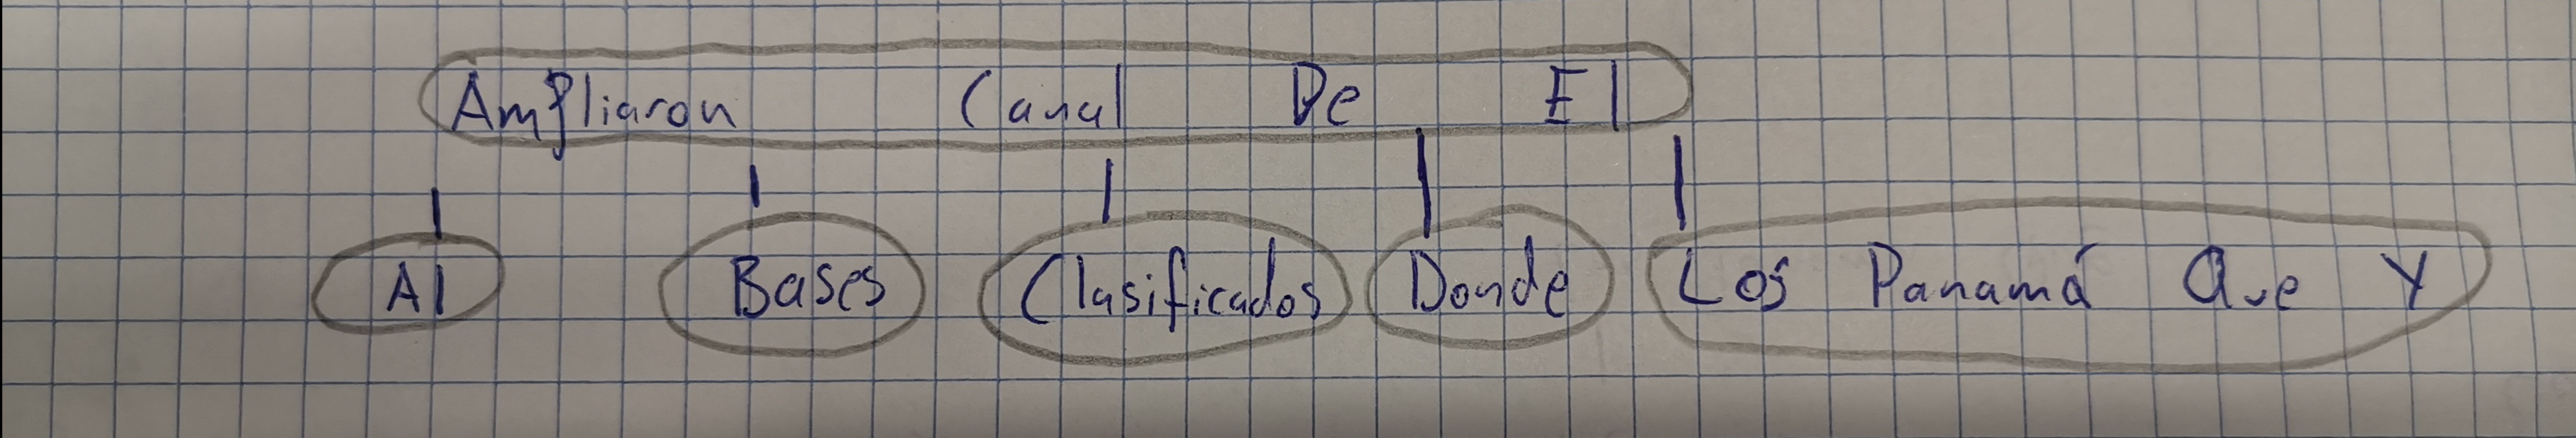 Ampliaron Canal De El
Al Bases Clasificados Donde Los Panamá Que Y